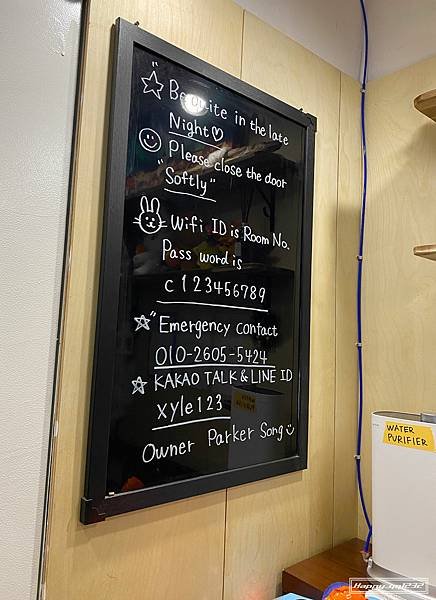 "Be quite in the late
Night♡
Please close the door
"Softly"
Wifi ID is Room No.
Pass word is
c123456789
"Emergency contact
010-2605-5424
KAKAO TALK & LINE ID
xyle123
Owner Parker Song
WATER
PURIFIER
Happyjml232